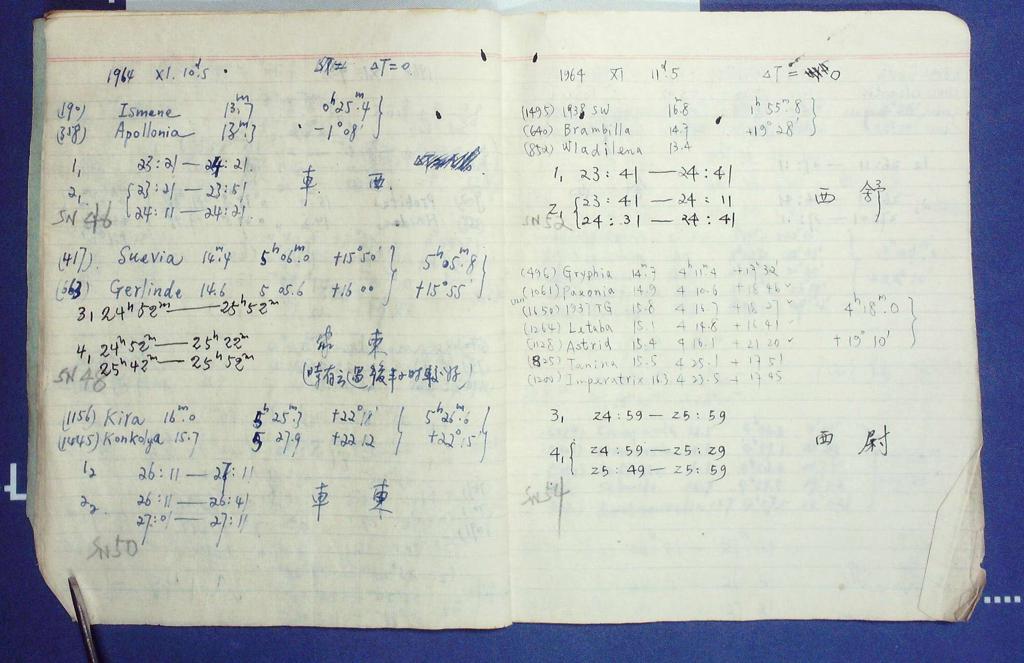 1964 XI. 10ᵈ.5 ΔT=0
(190) Ismene 13ᵐ.7 0ʰ25ᵐ.4
(358) Apollonia 13ᵐ.3 -1°08'
1, 23:21 — 24:21
2, 23:21 — 23:51 車 西
24:11 — 24:21
SN 46
(417) Suevia 14ᵐ.4 5ʰ06ᵐ.0 +15°50' 5ʰ05ᵐ.8
(663) Gerlinde 14.6 5 05.6 +16 00 +15°55'
3, 24ʰ52ᵐ — 25ʰ52ᵐ
4, 24ʰ52ᵐ — 25ʰ22ᵐ 東
25ʰ42ᵐ — 25ʰ52ᵐ
SN 48
(1156) Kira 16ᵐ.0 5ʰ25ᵐ.3 +22°18' 5ʰ26ᵐ.6
(1445) Konkolya 15.7 5 27.9 +22 12 +22°15'
1₂ 26:11 — 27:11
2₂ 26:11 — 26:41 車 東
27:01 — 27:11
SN50
1964 XI 11ᵈ.5 ΔT = 0
(1495) 1938 SW 16ᵐ.8 1ʰ55ᵐ.8
(640) Brambilla 14.7 +19°28'
(852) Wladilena 13.4
1, 23:41 — 24:41
2, 23:41 — 24:11 西 舒
24:31 — 24:41
SN52
(496) Gryphia 14ᵐ.7 4ʰ11ᵐ.4 +17°32'
(1061) Paeonia 14.9 4 10.6 +16 46
(1650) 1937 TG 15.8 4 16.7 +18 27 4ʰ18ᵐ.0
(1264) Letaba 15.1 4 14.8 +16 41
(1128) Astrid 15.4 4 16.1 +21 20 +19°10'
(825) Tanina 15.5 4 25.1 +17 51
(1200) Imperatrix 16.3 4 23.5 +17 45
3, 24:59 — 25:59
4, 24:59 — 25:29 西 尉
25:49 — 25:59
SN54